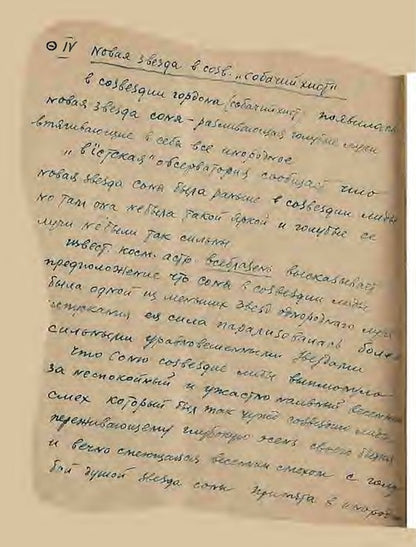 IV Новая звезда в созв. „Собачий хист"
в созвездии гордона (собачий хист) появилась
новая звезда соня - разливающая голубые лучи
втягивающие в себя все инородное
обсерватория сообщает что
новая звезда соня была раньше в созвездии лиды
но там она не была такой яркой и голубые ее
лучи не были так сильны
извест. косм. астр высказывает
предположение что соня в созвездии лиды
была одной из звезд лучей
испускания ец сила парализовалась более
сильными уравновешенными звездами
что соню созвездие лиды
за неспокойный и ужасно наивный
смех который был так чужд созвездию лиды
переживающему глубокую осень своего бытия
и вечно смеющаяся весенним смехом с голу
бой душой звезда соня в инородное